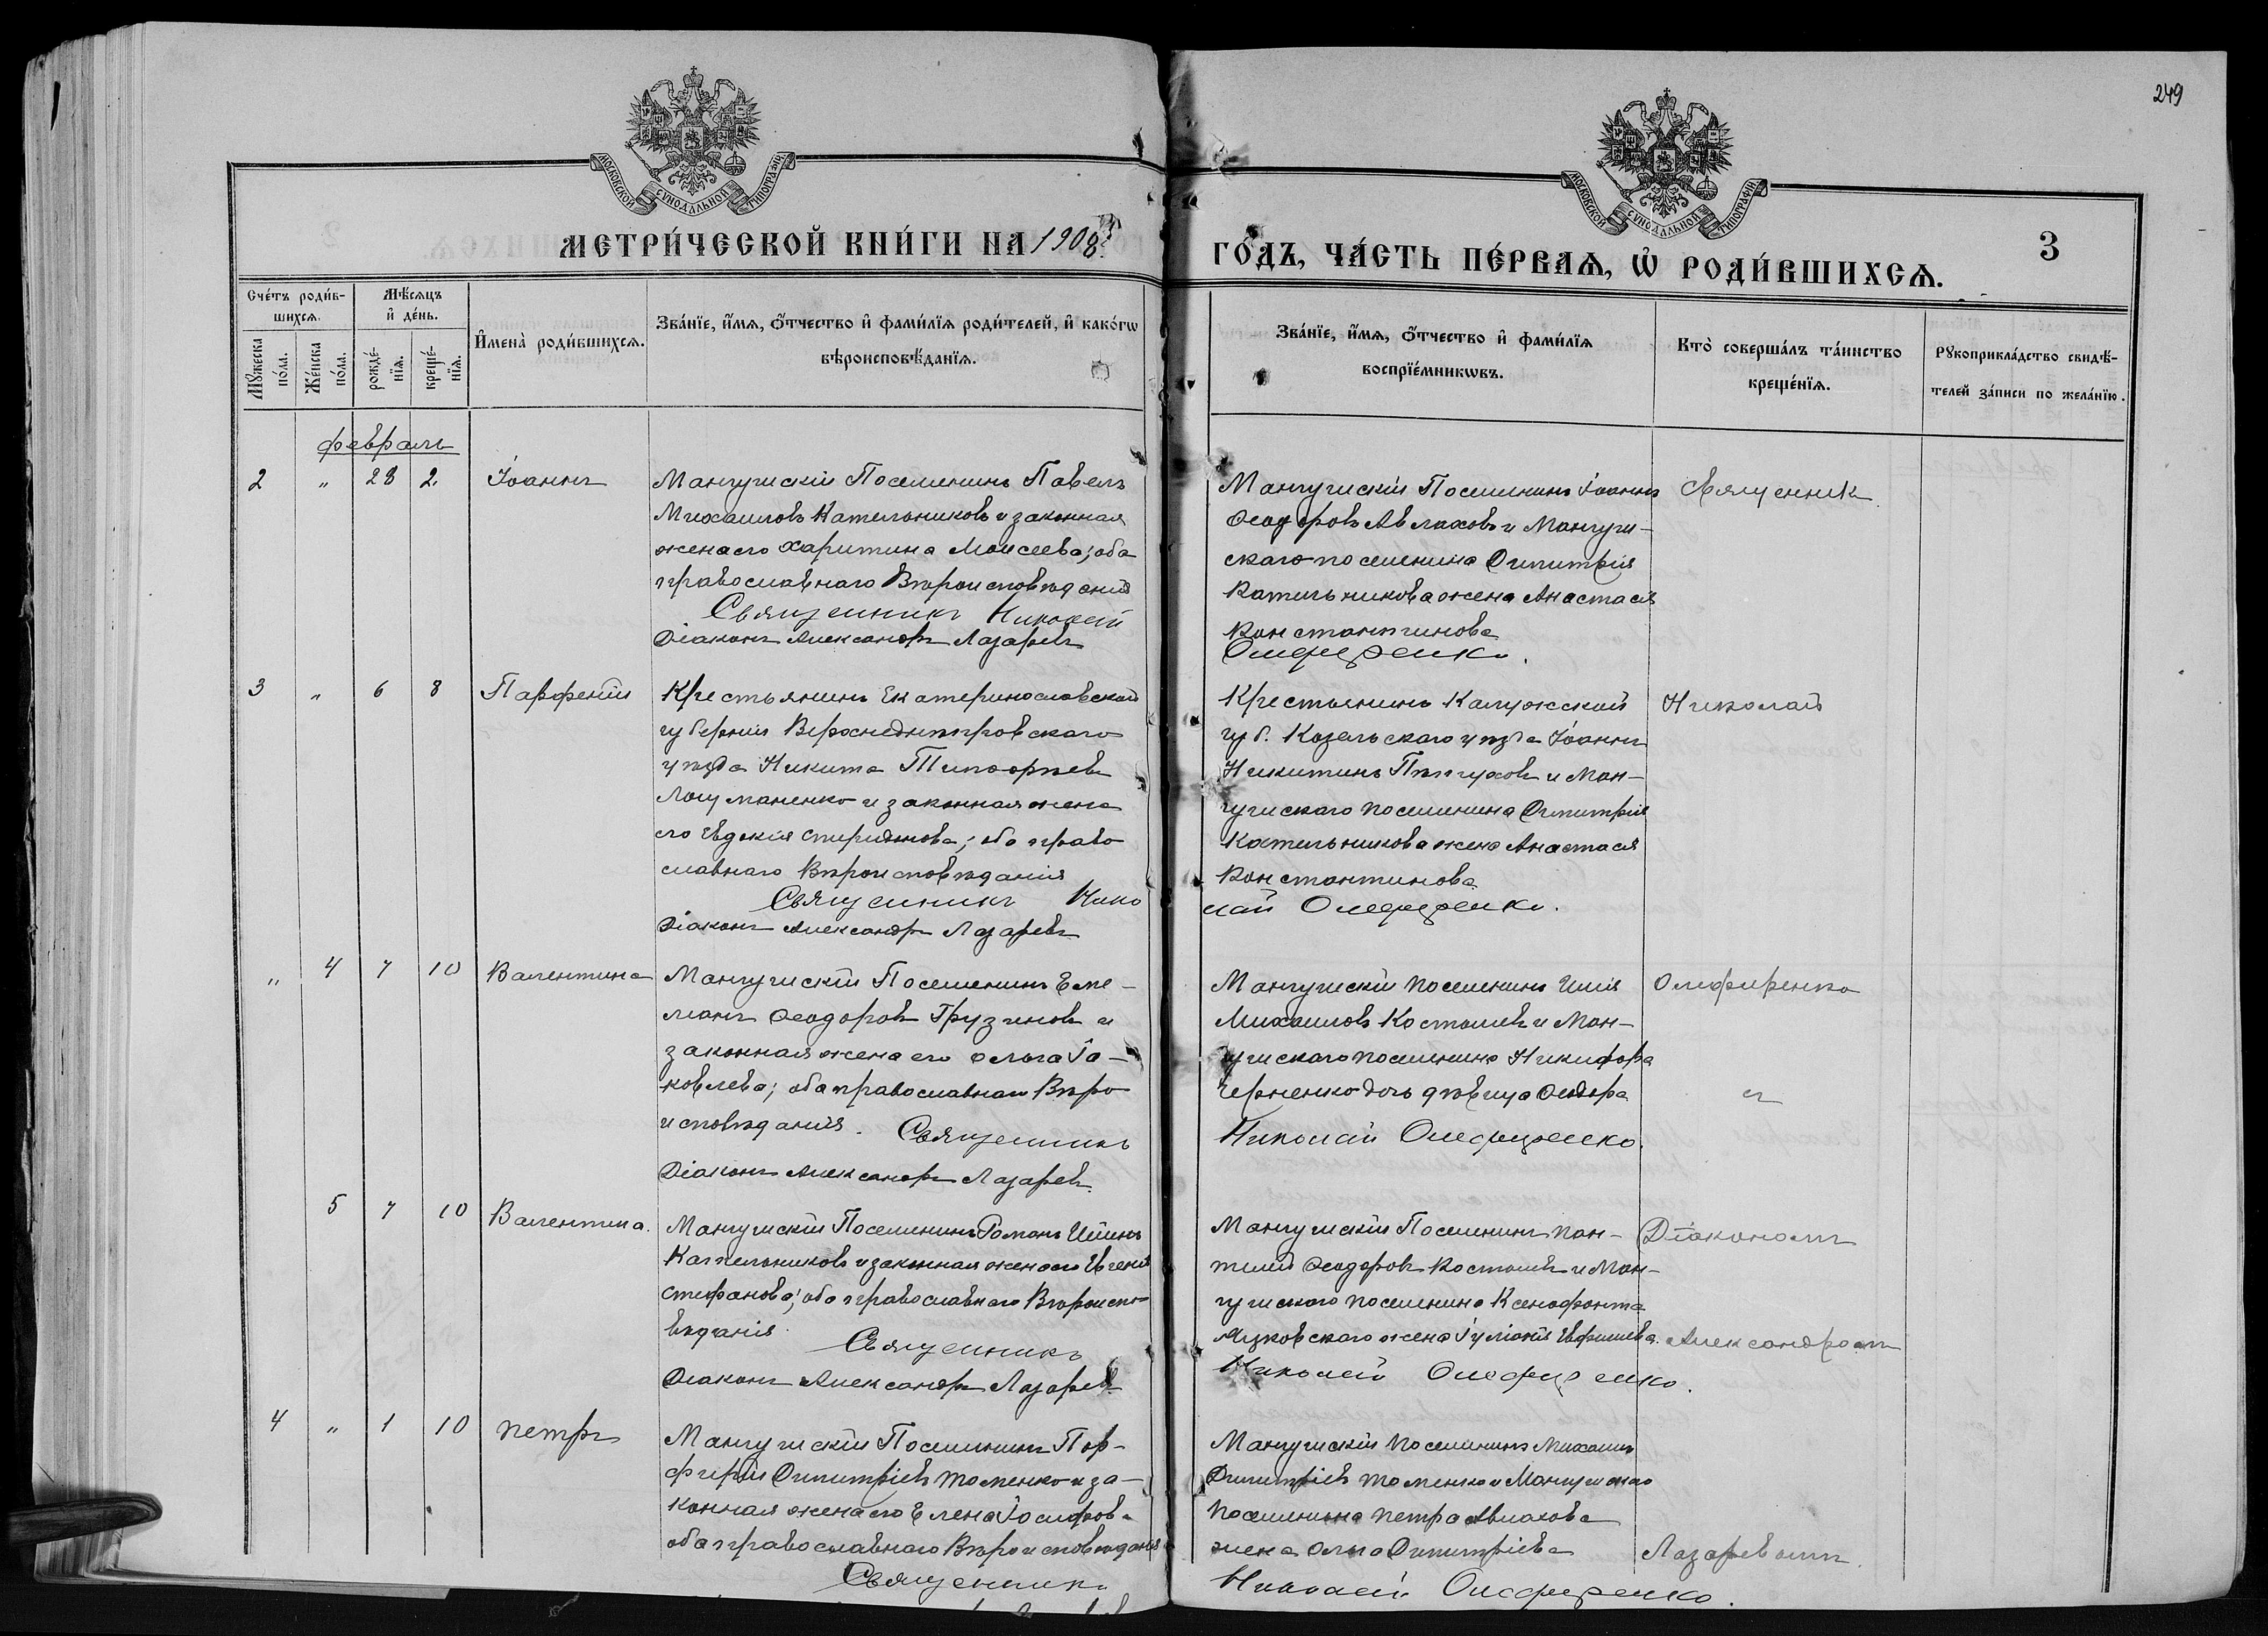 249
МОСКОВСКОЙ СѴНОДАЛЬНОЙ ТИПОГРАФІИ
МОСКОВСКОЙ СѴНОДАЛЬНОЙ ТИПОГРАФІИ
МЕТРИ́ЧЕСКОЙ КНИ́ГИ НА 1908
ГО́ДЪ, ЧА́СТЬ ПЕ́РВАѦ, Ѡ҆ РОДИ́ВШИХСѦ.
3
Сче́тъ роди́в-
шихсѧ.
Мѣ́сѧцъ
и҆ де́нь.
Мꙋ́жеска
по́ла.
Же́нска
по́ла.
рожде́-
нїѧ.
креще́-
нїѧ.
И҆мена̀ роди́вшихсѧ.
Зва́нїе, и҆́мѧ, ѻ҆́тчество и҆ фами́лїѧ роди́телей, и҆ како́гѡ
вѣроисповѣ́данїѧ.
Зва́нїе, и҆́мѧ, ѻ҆́тчество и҆ фами́лїѧ
воспрїе́мникѡвъ.
Кто̀ соверша́лъ та́инство
креще́нїѧ.
Рꙋкоприкла́дство свидѣ́-
телей за́писи по жела́нїю.
февраль
2 " 28 2. Іоаннъ
Мангушскій Поселянинъ Павелъ
Михаиловъ Кательниковъ и законная
жена его Харитина Моисеева; оба
православнаго Вѣроисповѣданія
Священникъ Николай
Діаконъ Александръ Лазаревъ
Мангушскій Поселянинъ Іоаннъ
Ѳеодоровъ Авлаховъ и Мангуш-
скаго поселянина Димитрія
Кательникова жена Анастасія
Константинова
Олефиренко.
Священник
3 " 6 8 Парфеній
Крестьянинъ Екатеринославской
губерніи Верхнеднѣпровскаго
уѣзда Никита Тимофѣевъ
Лоцманенко и законная жена
его Евдокія Спиридонова; оба право
славнаго Вѣроисповѣданія
Священникъ Нико
Діаконъ Александръ Лазаревъ
Крестьянинъ Калужской
губ. Козельскаго уѣзда Іоаннъ
Никитинъ Пѣтуховъ и Ман-
гушскаго поселянина Димитрія
Кательникова жена Анастасія
Константинова
лай Олефиренко.
Николай
" 4 7 10 Валентина
Мангушскій Поселянинъ Еме-
ліанъ Ѳеодоровъ Грузиновъ и
законная жена его Ольга Іа-
ковлева; оба православнаго Вѣро
исповѣданія. Священникъ
Діаконъ Александръ Лазаревъ.
Мангушскій поселянинъ Илія
Михаиловъ Костылевъ и Ман-
гушскаго поселянина Никифора
Черненко дочь дѣвица Ѳеодора
Николай Олефиренко.
Олефиренко
съ
5 7 10 Валентина.
Мангушскій Поселянинъ Романъ Иліинъ
Кательниковъ и законная жена его Евгенія
Стефанова; оба православнаго Вѣроиспо-
вѣданія. Священникъ
Діаконъ Александръ Лазаревъ
Мангушскій Поселянинъ Пан-
телей Ѳеодоровъ Костылевъ и Ман-
гушскаго поселянина Ксенофонта
жена Іуліанія
Николай Олефиренко.
Діакономъ
Александромъ
4 " 1 10 Петръ
Мангушскій Поселянинъ Пор-
фирій Димитріевъ Томенко и за-
конная жена его Елена Іосифова
оба православнаго Вѣроисповѣданія
Священникъ
Мангушскій поселянинъ Михаилъ
Димитріевъ Томенко и Мангушскаго
поселянина Петра Авлахова
жена Ольга Димитріева
Николай Олефиренко.
Лазаревымъ.